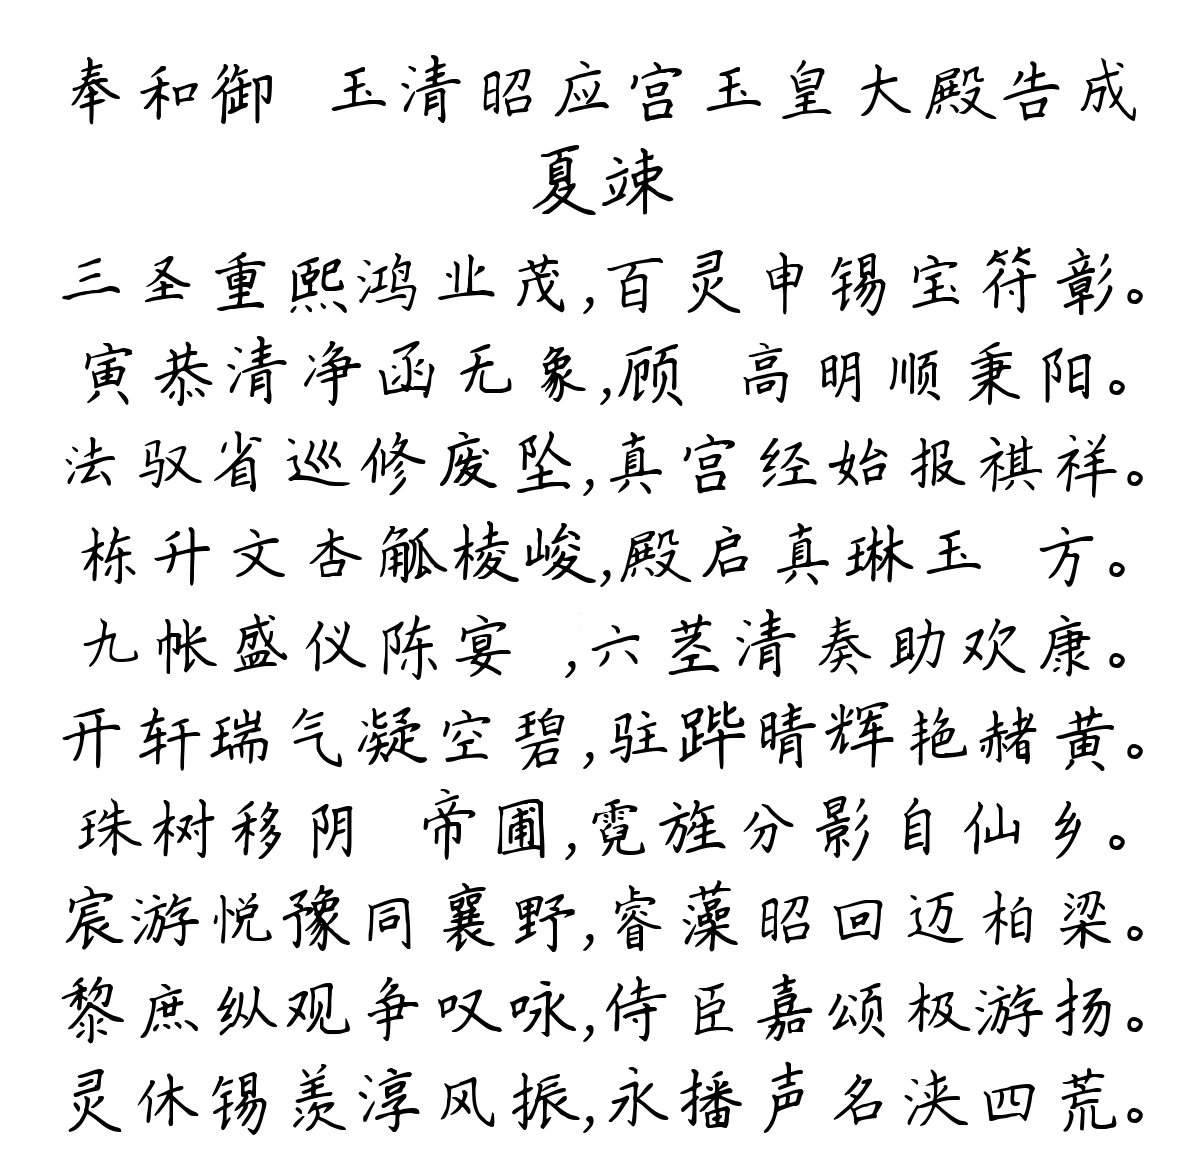 奉和御 玉清昭应宫玉皇大殿告成
夏竦
三圣重熙鸿业茂,百灵申锡宝符彰。
寅恭清净函无象,顾 高明顺秉阳。
法驭省巡修废坠,真宫经始报祺祥。
栋升文杏觚棱峻,殿启真琳玉 方。
九帐盛仪陈宴 ,六茎清奏助欢康。
开轩瑞气凝空碧,驻跸晴辉艳赭黄。
珠树移阴 帝圃,霓旌分影自仙乡。
宸游悦豫同襄野,睿藻昭回迈柏梁。
黎庶纵观争叹咏,侍臣嘉颂极游扬。
灵休锡羡淳风振,永播声名浃四荒。